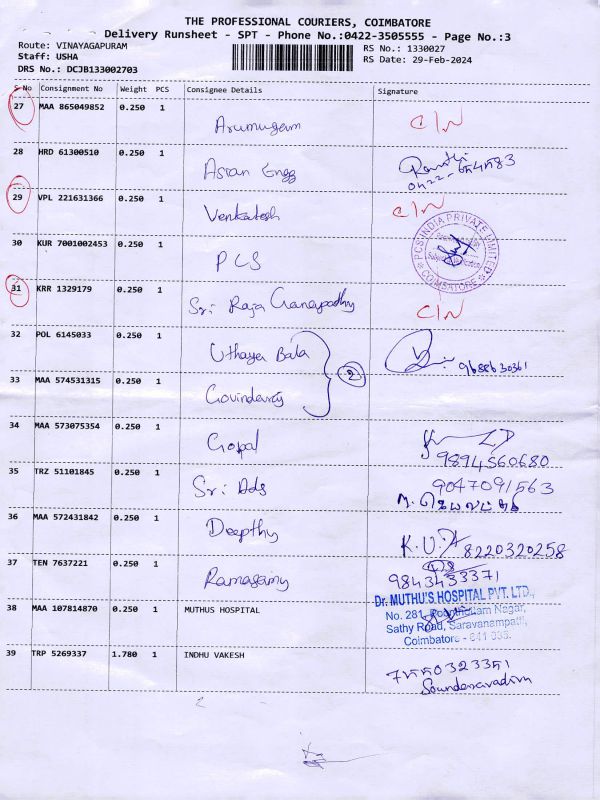 THE PROFESSIONAL COURIERS, COIMBATORE
Delivery Runsheet - SPT - Phone No.:0422-3505555 - Page No.:3
Route: VINAYAGAPURAM
Staff: USHA
DRS No.: DCJB133002703
RS No.: 1330027
RS Date: 29-Feb-2024
S No Consignment No Weight PCS Consignee Details Signature
27 MAA 865049852 0.250 1 Arumugam C/N
28 HRD 61300510 0.250 1 Asian Engg
29 VPL 221631366 0.250 1 Venkatesh C/N
30 KUR 7001002453 0.250 1 PCS
PCS-INDIA PRIVATE LIMITED
COIMBATORE
31 KRR 1329179 0.250 1 Sri Raja Ganapathy C/N
32 POL 6145033 0.250 1 Uthaya Bala
2 9688630361
33 MAA 574531315 0.250 1 Govindaraj
34 MAA 573075354 0.250 1 Gopal
9894560680
35 TRZ 51101845 0.250 1 Sri Ads 9047091563
36 MAA 572431842 0.250 1 Deepthy 8220320258
37 TEN 7637221 0.250 1 Ramasamy 9843433371
38 MAA 107814870 0.250 1 MUTHUS HOSPITAL
Dr. MUTHU'S HOSPITAL PVT. LTD.,
No. 281, Poonthottam Nagar,
Sathy Road, Saravanampatti,
Coimbatore - 641 035.
39 TRP 5269337 1.780 1 INDHU VAKESH
Soundaravadivu
2